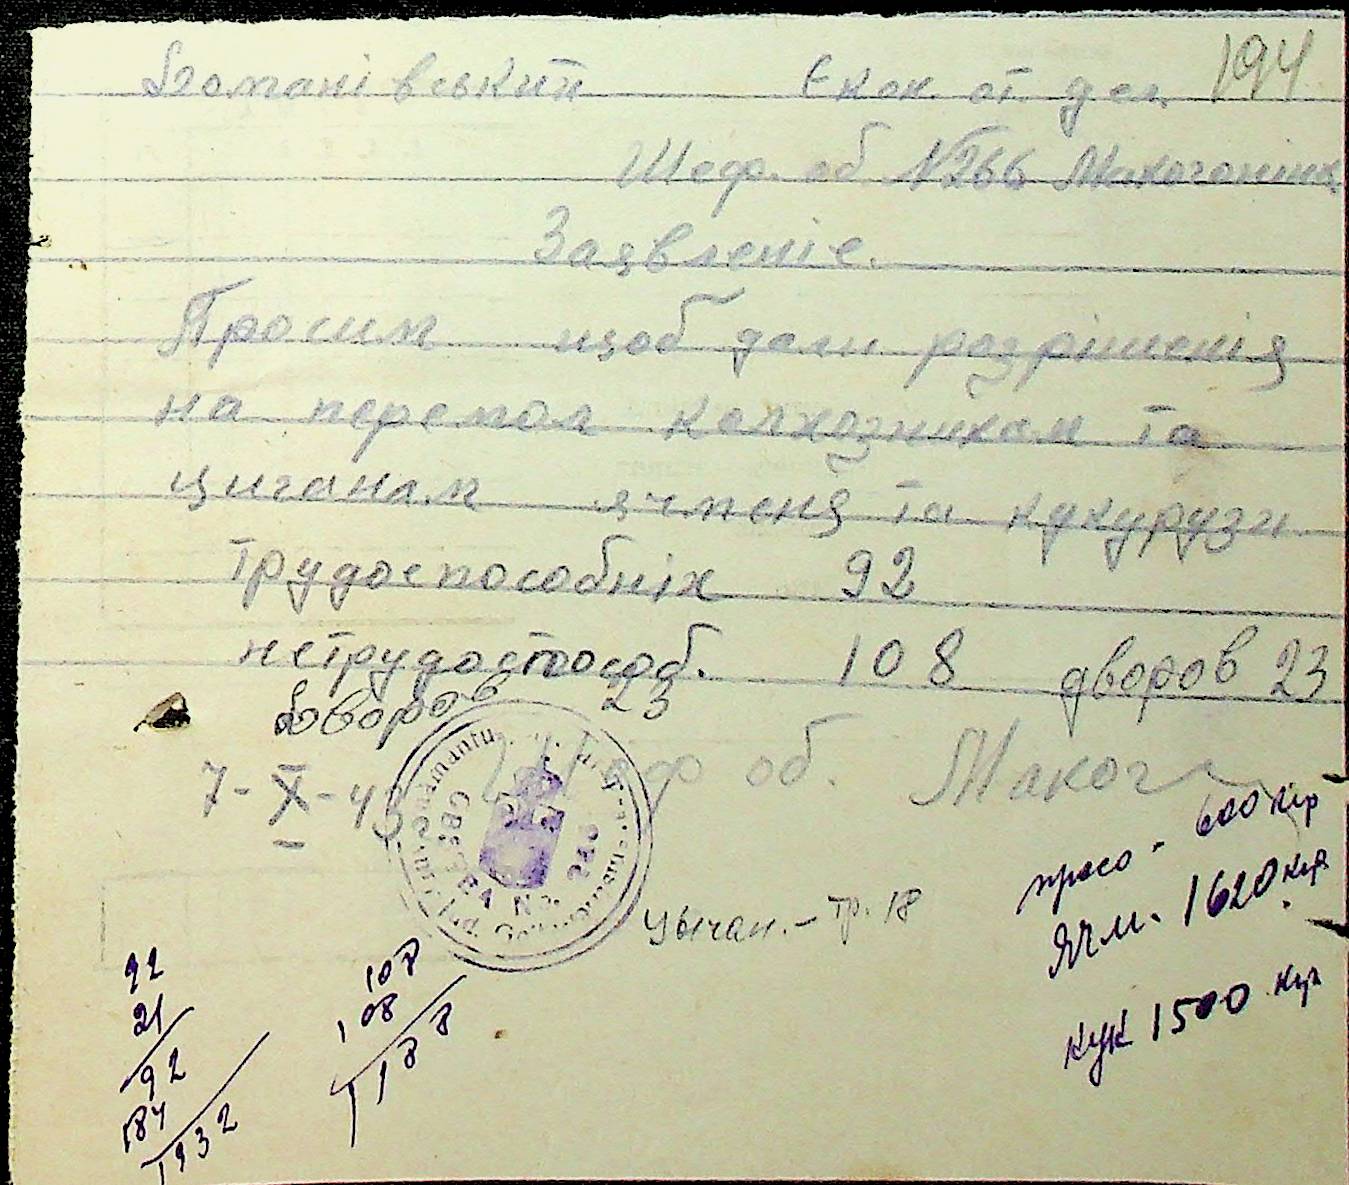 Доманівський Екон. от. дел. 194
Шеф. об. №266
Заявленіе.
Просим щоб дали розрішенія
на перемол колхозникам та
циганам ячменя та кукурузи
трудоспособніх 92
нетрудоспособ. 108 дворов 23
дворов 23
7-X-43 Шеф об. Маког
просо - 600 кгр
Цыган. - тр. 18
Ячм. 1620 кгр
Кук 1500 кгр
92
21
92
184
1932
108
108
1188